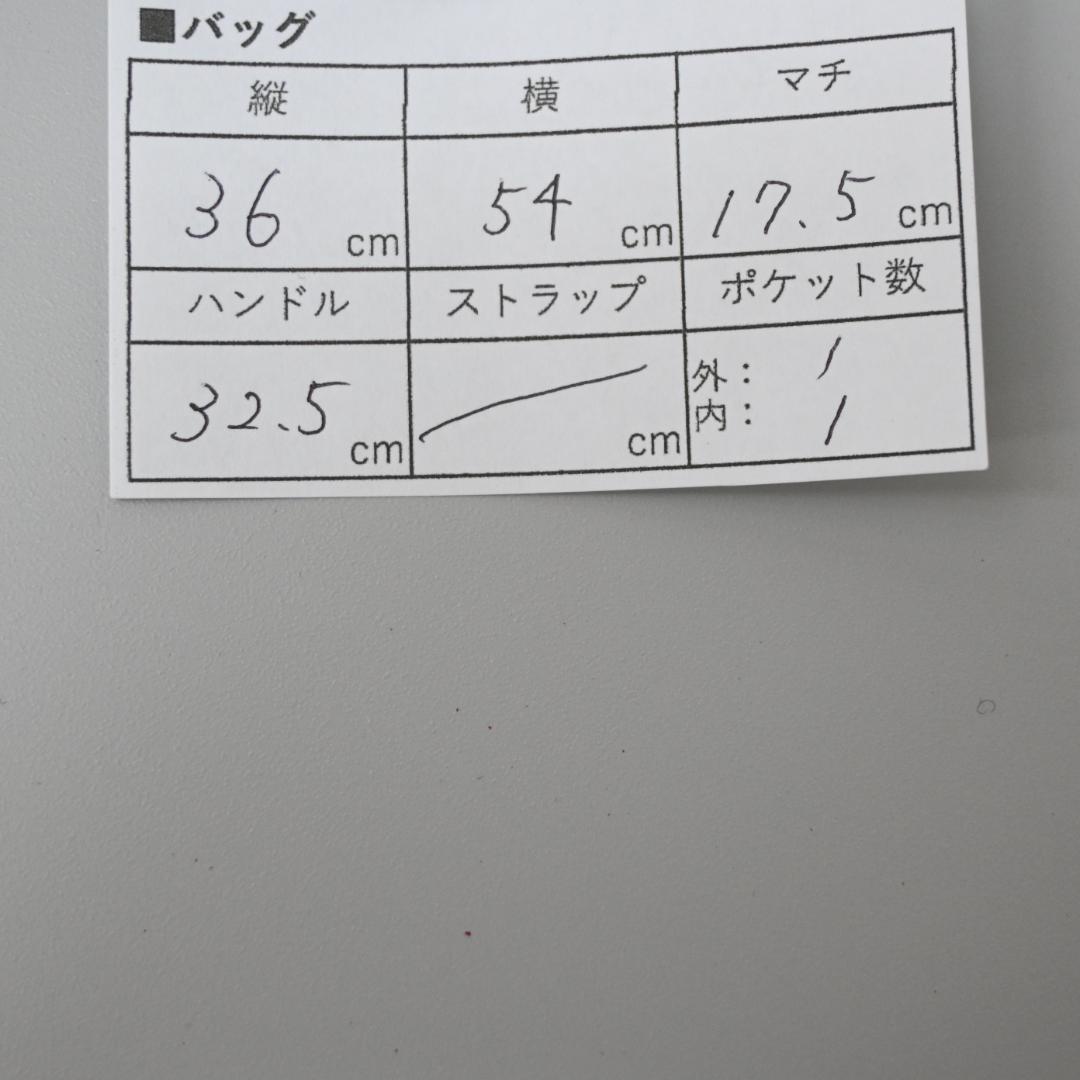 ■バッグ
縦 横 マチ
36 cm 54 cm 17.5 cm
ハンドル ストラップ ポケット数
32.5 cm cm 外: 1
内: 1